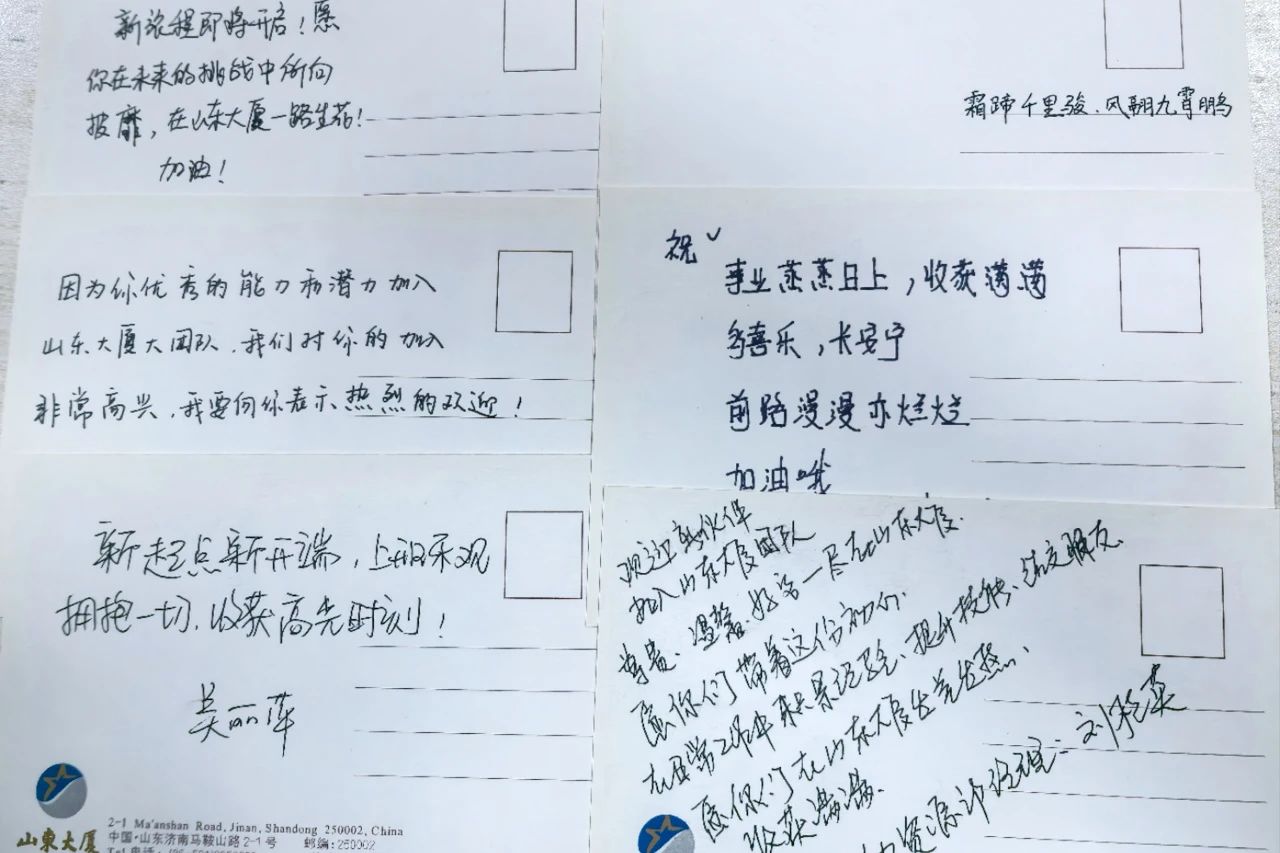 新旅程即将开启！愿
你在未来的挑战中所向
披靡，在山东大厦一路生花！
加油！
霜蹄千里骏、风翮九霄鹏
因为你优秀的能力和潜力加入
山东大厦大团队，我们对你的加入
非常高兴，我要向你表示热烈的欢迎！
祝
事业蒸蒸日上，收获满满
多喜乐，长安宁
前路漫漫亦烂烂
加油哦
新起点新开端，上积乐观
拥抱一切，收获高光时刻！
吴丽萍
山東大厦
2-1 Ma'anshan Road, Jinan, Shandong 250002, China
中国·山东济南马鞍山路2-1号 邮编:250002
欢迎新伙伴
加入山东大厦团队
尊贵、温馨、好客一尽在山东大厦.
愿你们带着这份初心.
在日常工作中积累经验、提升技能、结交朋友.
愿你们在山东大厦发光发热、
收获满满.